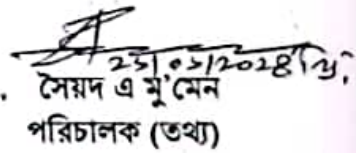 ২১/০১/২০২৪ খ্রি:
সৈয়দ এ মু'মেন
পরিচালক (তথ্য)